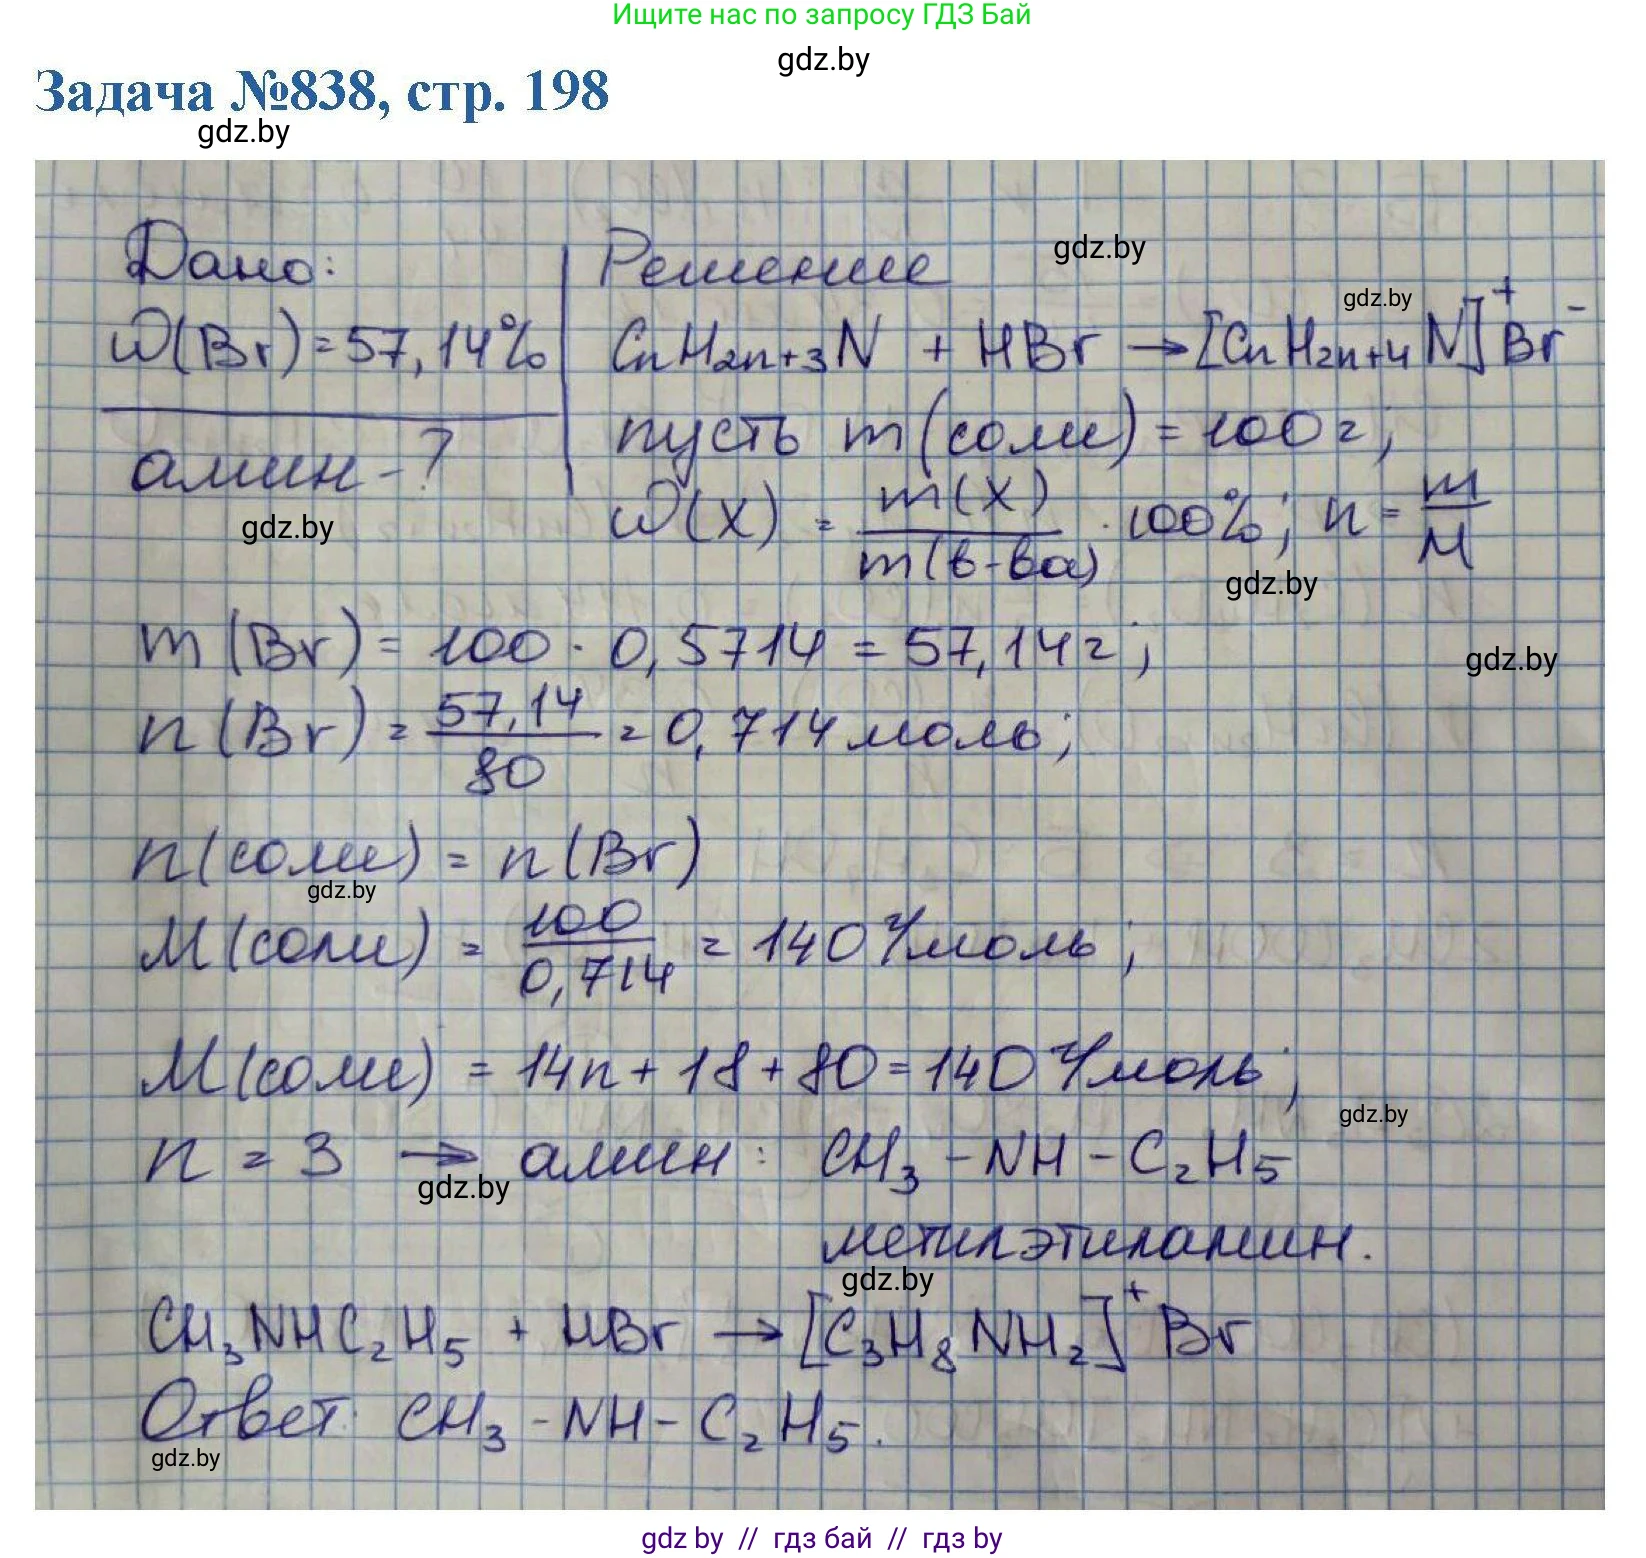 Ищите нас по запросу ГДЗ Бай
gdz.by
Задача №838, стр. 198
gdz.by
Дано:
Решение
gdz.by
gdz.by
ω(Br)=57,14%
CnH2n+3N + HBr → [CnH2n+4N]⁺Br⁻
пусть m(соли) = 100г;
амин-?
ω(X) = m(X)/m(в-ва) · 100%; n = m/M
gdz.by
gdz.by
m(Br) = 100 · 0,5714 = 57,14г;
gdz.by
n(Br) = 57,14/80 = 0,714 моль;
n(соли) = n(Br)
gdz.by
M(соли) = 100/0,714 = 140 г/моль;
M(соли) = 14n + 18 + 80 = 140 г/моль;
gdz.by
n = 3 → амин: CH₃-NH-C₂H₅
gdz.by
метилэтиламин.
gdz.by
CH₃NHC₂H₅ + HBr → [C₃H₈NH₂]⁺Br
Ответ: CH₃-NH-C₂H₅.
gdz.by
gdz by // гдз бай // гдз by